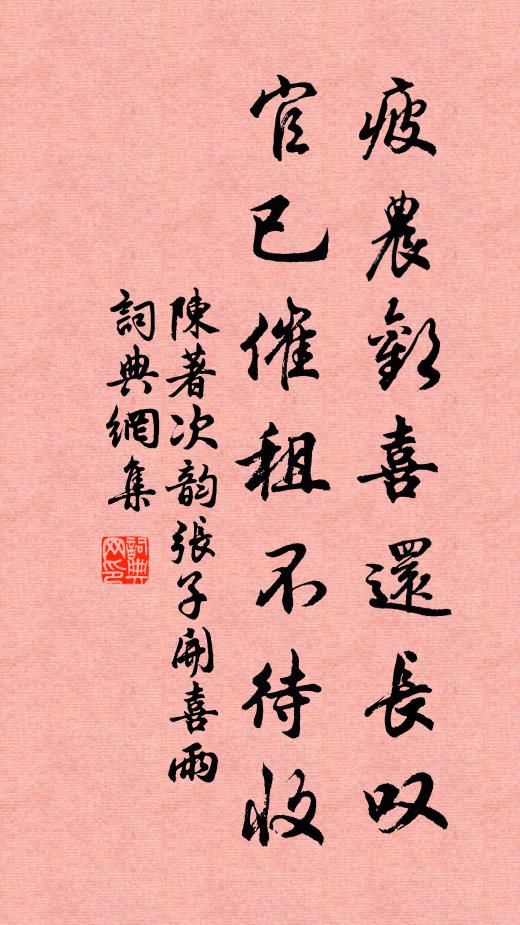 疲農歡喜還長叹
官已催租不待收
陳著次韵張子開喜雨
詞典網集
詞典
网印